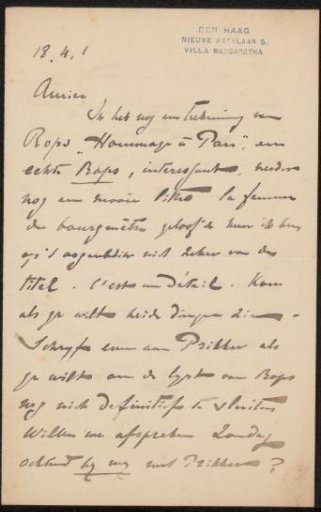 DEN HAAG
NIEUWE PARKLAAN 5.
VILLA MARGARETHA
18.4.1
Amice
Ik heb nog een teekening van
Rops "Hommage à Pan", een
echte Rops, interessant, verder
nog een mooie litho La femme
du bourgmêtre geloof ik maar ik ben
op 't oogenblik niet zeker van den
titel. C'est un détail. Kom
als ge wilt beide dingen zien.
Schryf even aan Prikker als
ge wilt om de lyst van Rops
nog niet definitief te sluiten
Willen we afspreken Zondag
ochtend by my met Prikker?